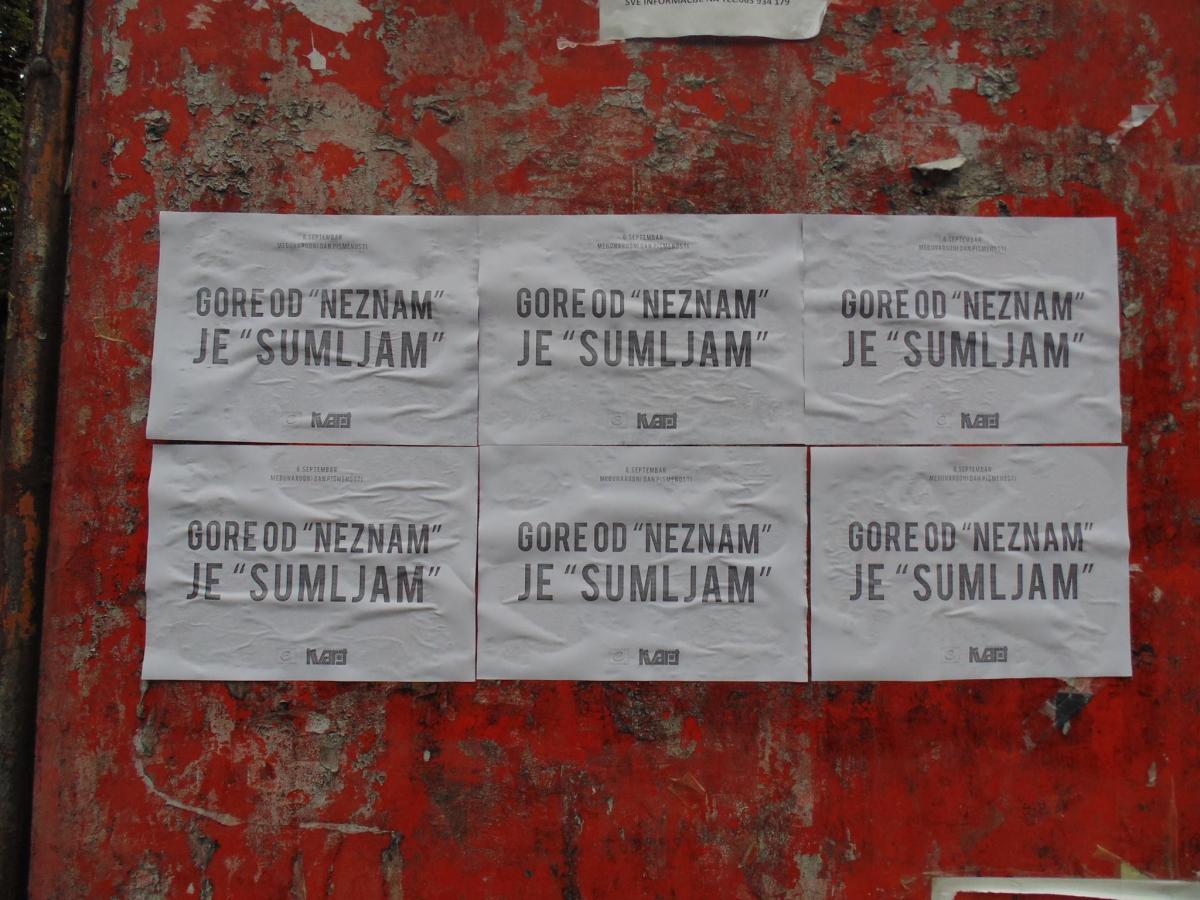 SVE INFORMACIJE NA TEL:065 934 179
8. SEPTEMBAR
MEĐUNARODNI DAN PISMENOSTI
GORE OD "NEZNAM"
JE "SUMLJAM"
KVART
8. SEPTEMBAR
MEĐUNARODNI DAN PISMENOSTI
GORE OD "NEZNAM"
JE "SUMLJAM"
KVART
8. SEPTEMBAR
MEĐUNARODNI DAN PISMENOSTI
GORE OD "NEZNAM"
JE "SUMLJAM"
KVART
8. SEPTEMBAR
MEĐUNARODNI DAN PISMENOSTI
GORE OD "NEZNAM"
JE "SUMLJAM"
KVART
8. SEPTEMBAR
MEĐUNARODNI DAN PISMENOSTI
GORE OD "NEZNAM"
JE "SUMLJAM"
KVART
8. SEPTEMBAR
MEĐUNARODNI DAN PISMENOSTI
GORE OD "NEZNAM"
JE "SUMLJAM"
KVART